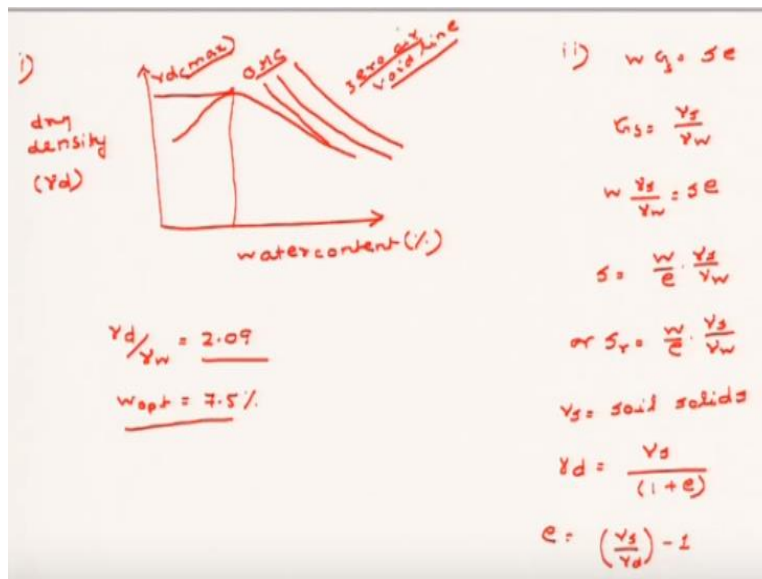 i)
γd(max)
OMC
zero air
void line
dry
density
(γd)
water content (%)
γd/γw = 2.09
wopt = 7.5%
ii) w G = se
Gs = γs/γw
w γs/γw = se
s = w/e · γs/γw
or Sr = w/e · γs/γw
γs = soil solids
γd = γs/(1+e)
e = (γs/γd) - 1